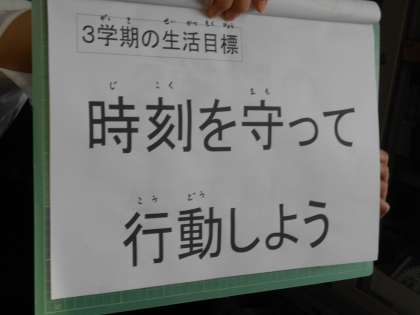 3学期の生活目標
時刻を守って
行動しよう